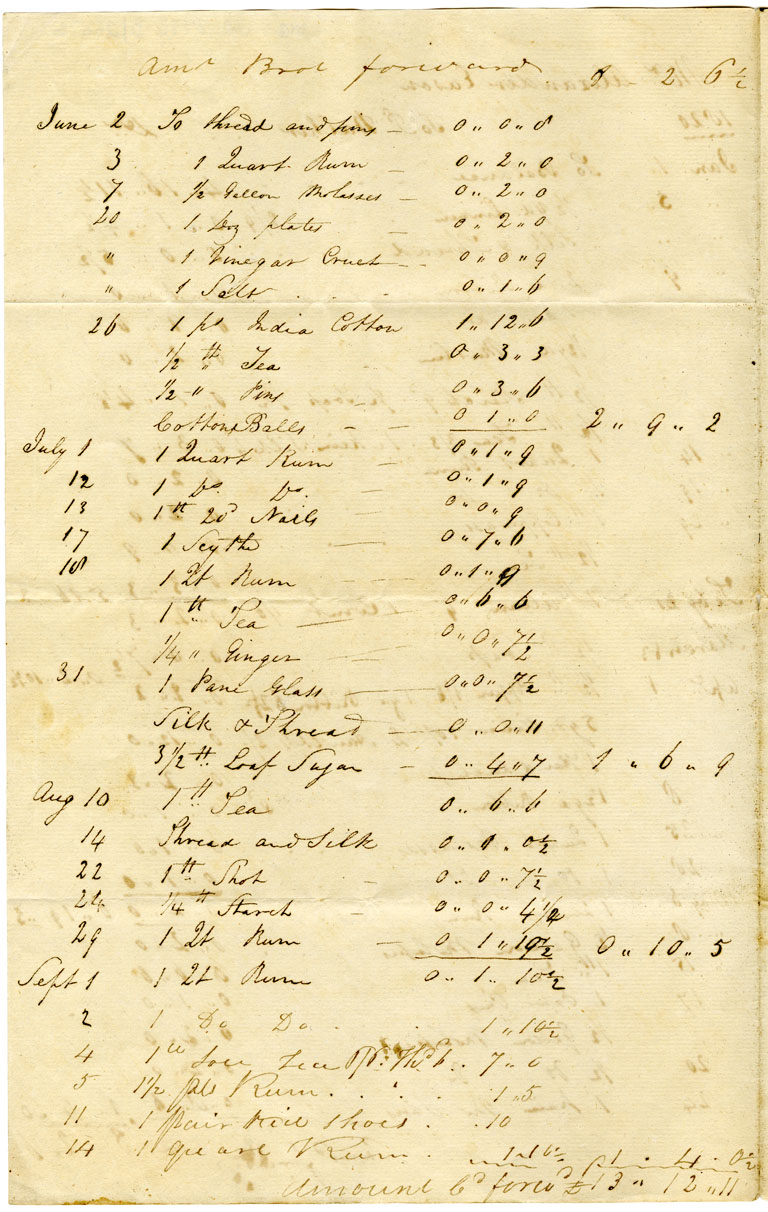 Amt Brot forward 8 2 6½
June 2 To thread and pins – 0 „ 0 „ 8
3 1 Quart Rum – 0 „ 2 „ 0
7 ½ Gallon Molasses – 0 „ 2 „ 0
20 1 Doz plates – 0 „ 2 „ 0
„ 1 Vinegar Cruet – 0 „ 0 „ 9
„ 1 Salt 0 „ 1 „ 6
26 1 ps India Cotton 1 „ 12 „ 6
½ lb Tea 0 „ 3 „ 3
½ „ Pins 0 „ 3 „ 6
Cotton Balls – – 0 1 „ 0 2 „ 9 „ 2
July 1 1 Quart Rum – 0 „ 1 „ 9
12 1 Do Do – 0 „ 1 „ 9
13 1 lb 20d Nails 0 „ 0 „ 9
17 1 Scythe 0 „ 7 „ 6
18 1 Qt Rum 0 „ 1 „ 9
1 lb Tea – 0 „ 6 „ 6
¼ „ Ginger – 0 „ 0 „ 7½
31 1 Pane Glass – 0 „ 0 „ 7½
Silk & Thread – 0 „ 0 „ 11
3½ lb Loaf Sugar – 0 „ 4 „ 7 1 „ 6 „ 9
Aug 10 1 lb Tea 0 „ 6 „ 6
14 Thread and Silk 0 „ 1 „ 0½
22 1 lb Shot – 0 „ 0 „ 7½
24 ¼ lb Starch – 0 „ 0 „ 4½
29 1 Qt Rum – 0 1 „ 10½ 0 „ 10 „ 5
Sept 1 1 Qt Rum 0 „ 1 „ 10½
2 1 Do Do . . 1 „ 10½
4 1 Tea 7 „ 0
5 1½ pts Rum . . . 1 „ 5
11 1 pair Kid Shoes . . 10
14 1 quart Rum . 1 „ 10½ £1 „ 4 „ 0½
Amount Cd forwd £13 „ 12 „ 11